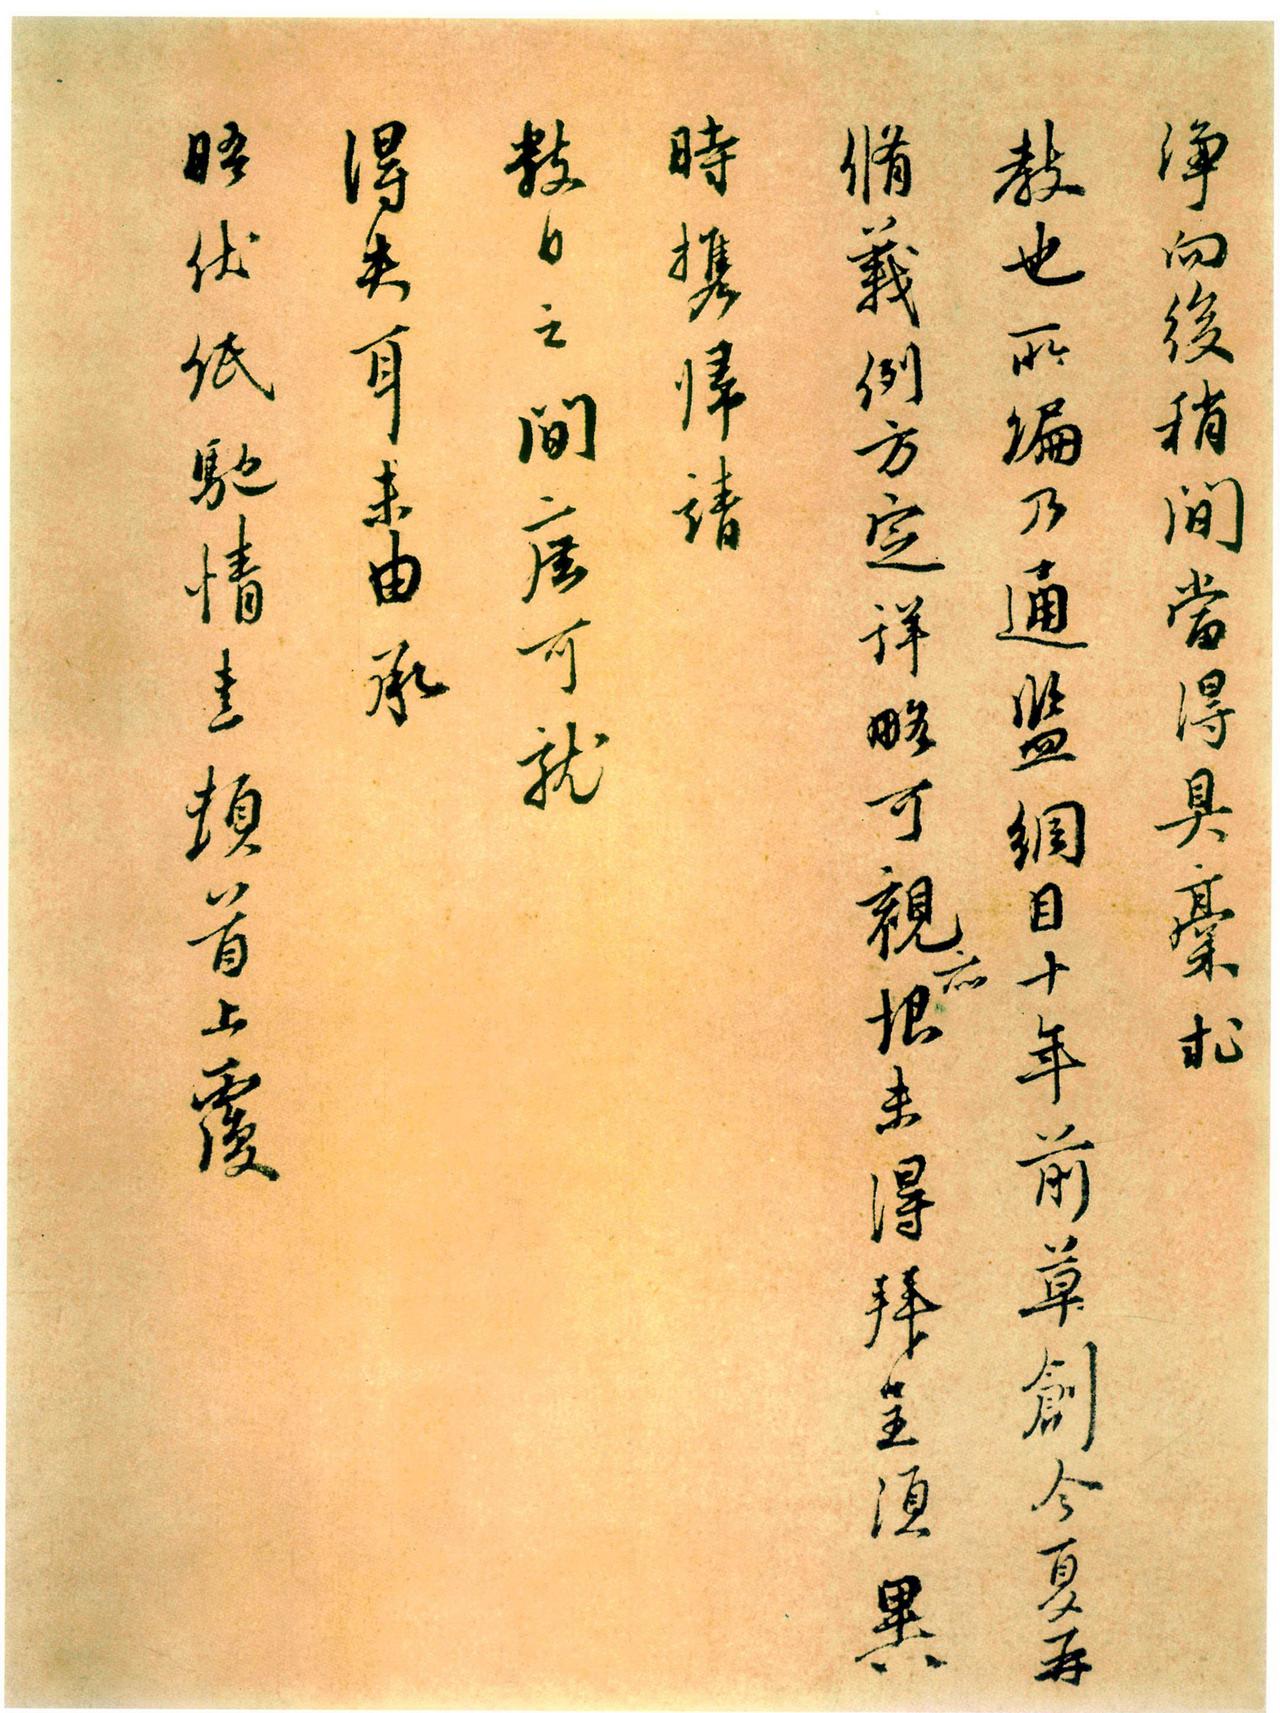 淨向後稍間當得具藁求
教也所編乃通監綱目十年前草創今夏再
脩義例方定詳略可觀亦恨未得拜呈須異
時携歸請
數日之間庶可就
得失耳未由承
晤伏紙馳情熹頓首上覆